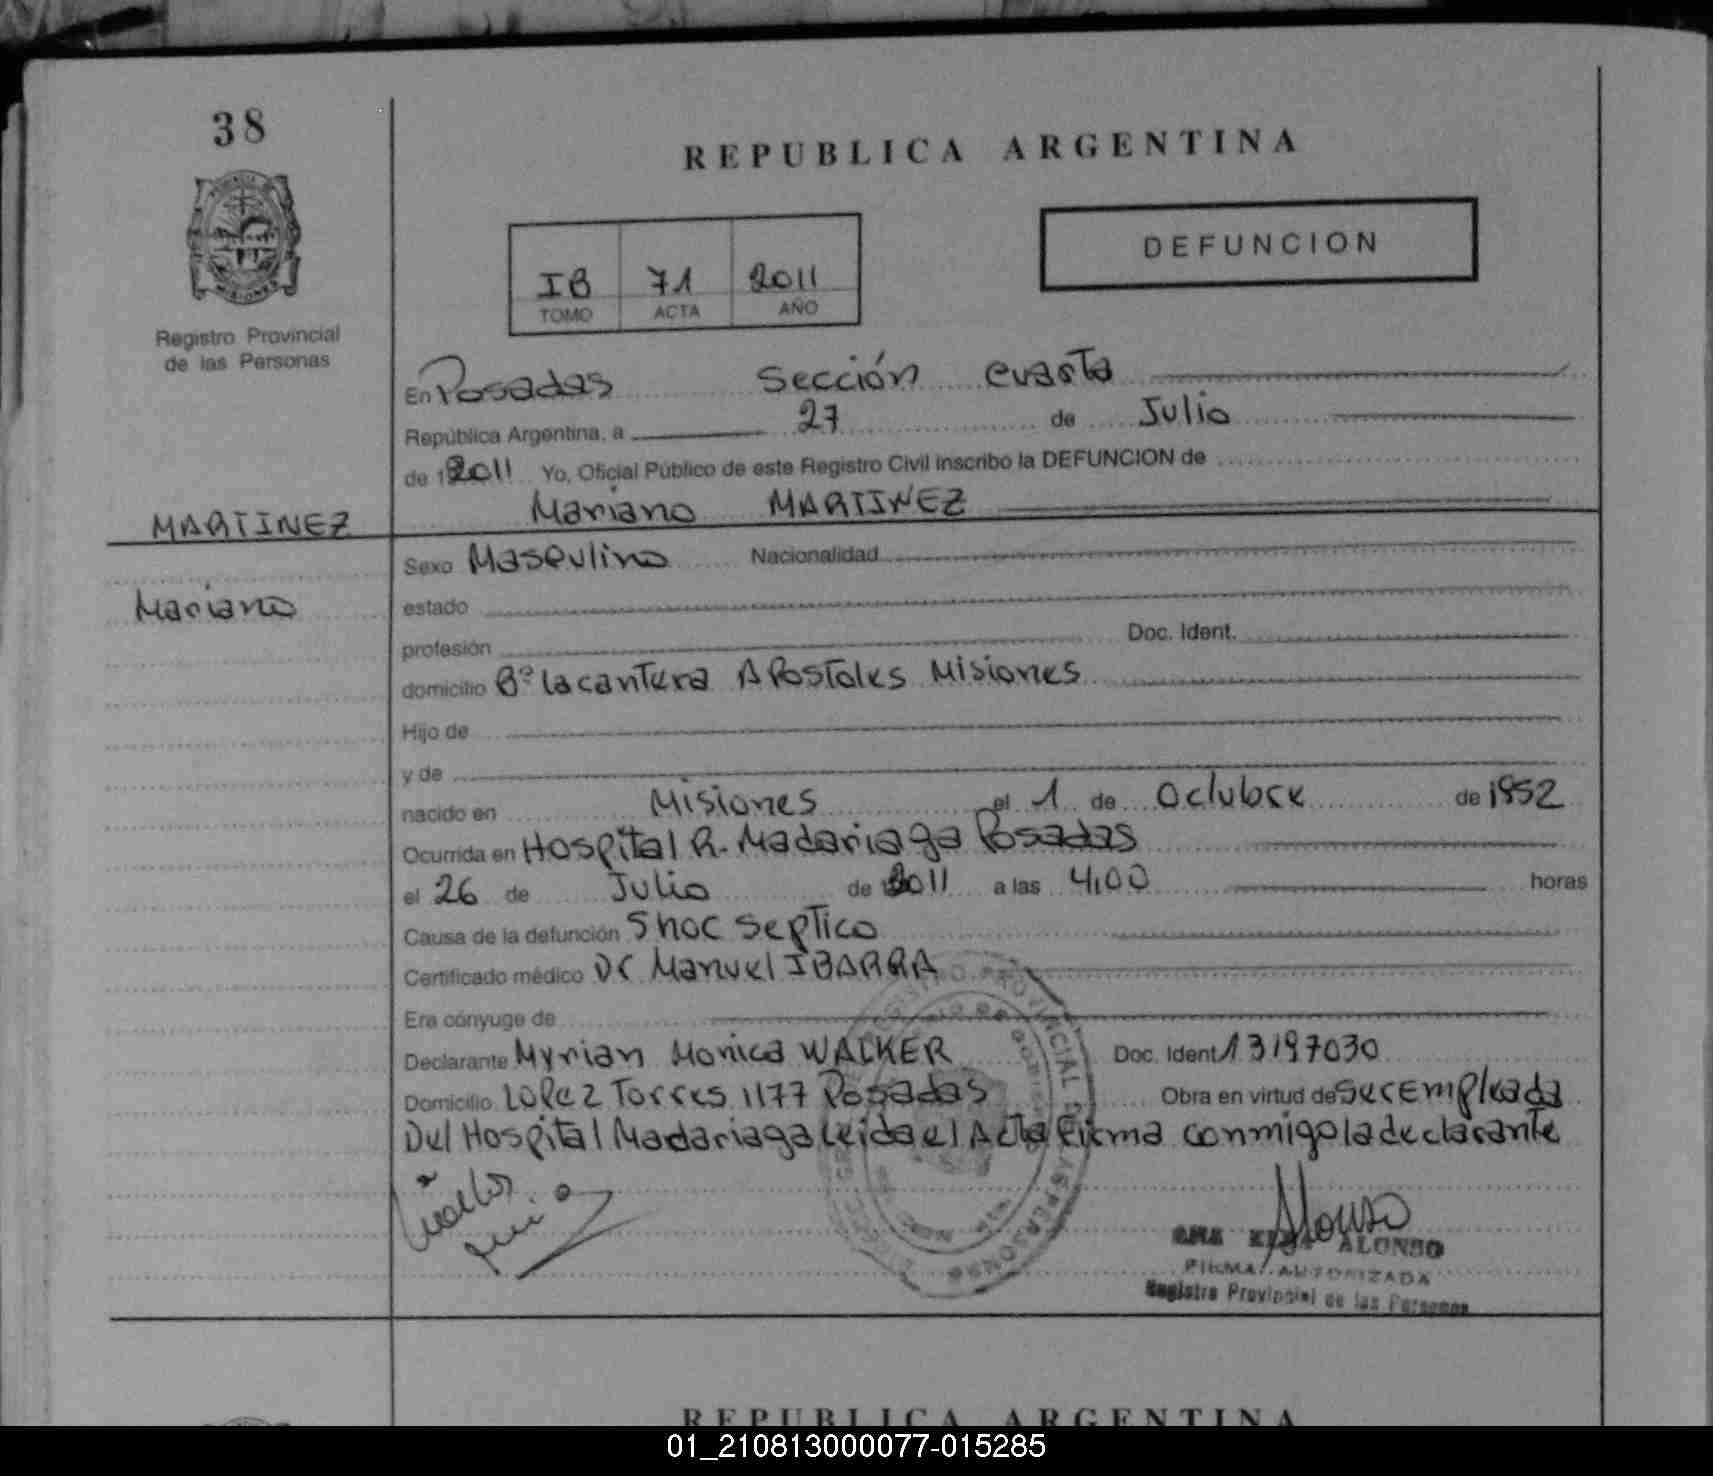 38
REPUBLICA ARGENTINA
DEFUNCION
IB 71 2011
TOMO ACTA AÑO
Registro Provincial
de las Personas
En Posadas Sección cuarta
República Argentina, a 27 de Julio
de 12011 Yo, Oficial Público de este Registro Civil inscribo la DEFUNCION de
MARTINEZ
Mariano MARTINEZ
Sexo Masculino Nacionalidad
Mariano
estado
profesión Doc. Ident.
domicilio Bº la cantera APostoles Misiones
Hijo de
y de
nacido en Misiones el 1 de Octubre de 1952
Ocurrida en Hospital R. Madariaga Posadas
el 26 de Julio de 2011 a las 4,00 horas
Causa de la defunción Shoc Septico
Certificado médico Dr Manuel IBARRA
Era cónyuge de
Declarante Myrian Monica WALKER Doc. Ident 13197030
Domicilio LoPez Torres 1177 Posadas Obra en virtud de ser empleada
Del Hospital Madariaga Leida el Acta Firma conmigo la declarante
Alonso
ALONSO
FIRMA AUTORIZADA
Registro Provincial de las Personas
REPUBLICA ARGENTINA
01_210813000077-015285